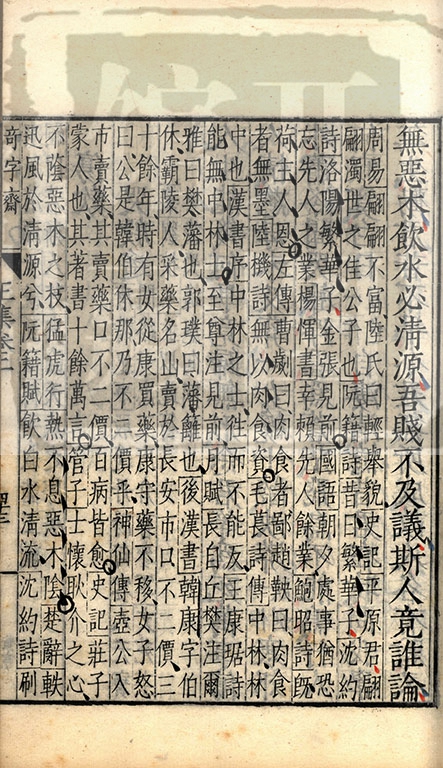 無惡木飲水必清源吾賤不及議斯人竟誰論
周易翩翩不富陸氏曰輕舉貌史記平原君翩
翩濁世之佳公子也阮籍詩昔日繁華子沈約
詩洛陽繁華子金張見前國語朝夕處事猶恐
忘先人之業楊惲書幸賴先人餘業範昭詩旣
荷主人恩左傳曹劌曰肉食者鄙趙鞅曰肉食
者無墨陸機詩無以肉食資毛萇詩傳中林林
中也漢書序中林之士徃而不能反王康琚詩
能無中林士至尊注見前月賦長自丘樊注爾
雅曰樊藩也郭璞曰藩籬也後漢書韓康字伯
休霸陵人采藥名山賣於長安市口不二價三
十餘年時有女從康買藥康守藥不移女子怒
曰公是韓伯休那乃不二價乎神仙傳壺公入
市賣藥其賣藥口不二價百病皆愈史記莊子
蒙人也其著書十餘萬言管子士懷耿介之心
不陰惡木之枝猛虎行熱不息惡木陰楚辭軼
迅風於清源兮阮籍賦飲白水清流沈約詩刷
奇字齋